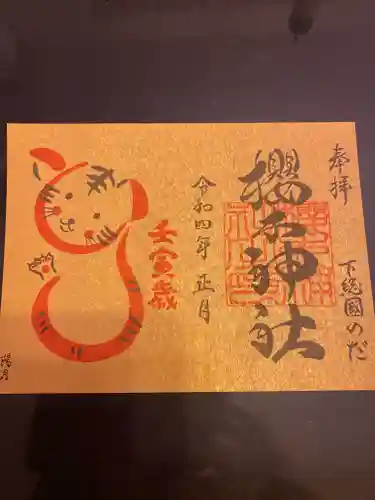 奉拝
下総國のだ
櫻木神社
令和四年 正月
壬寅歳